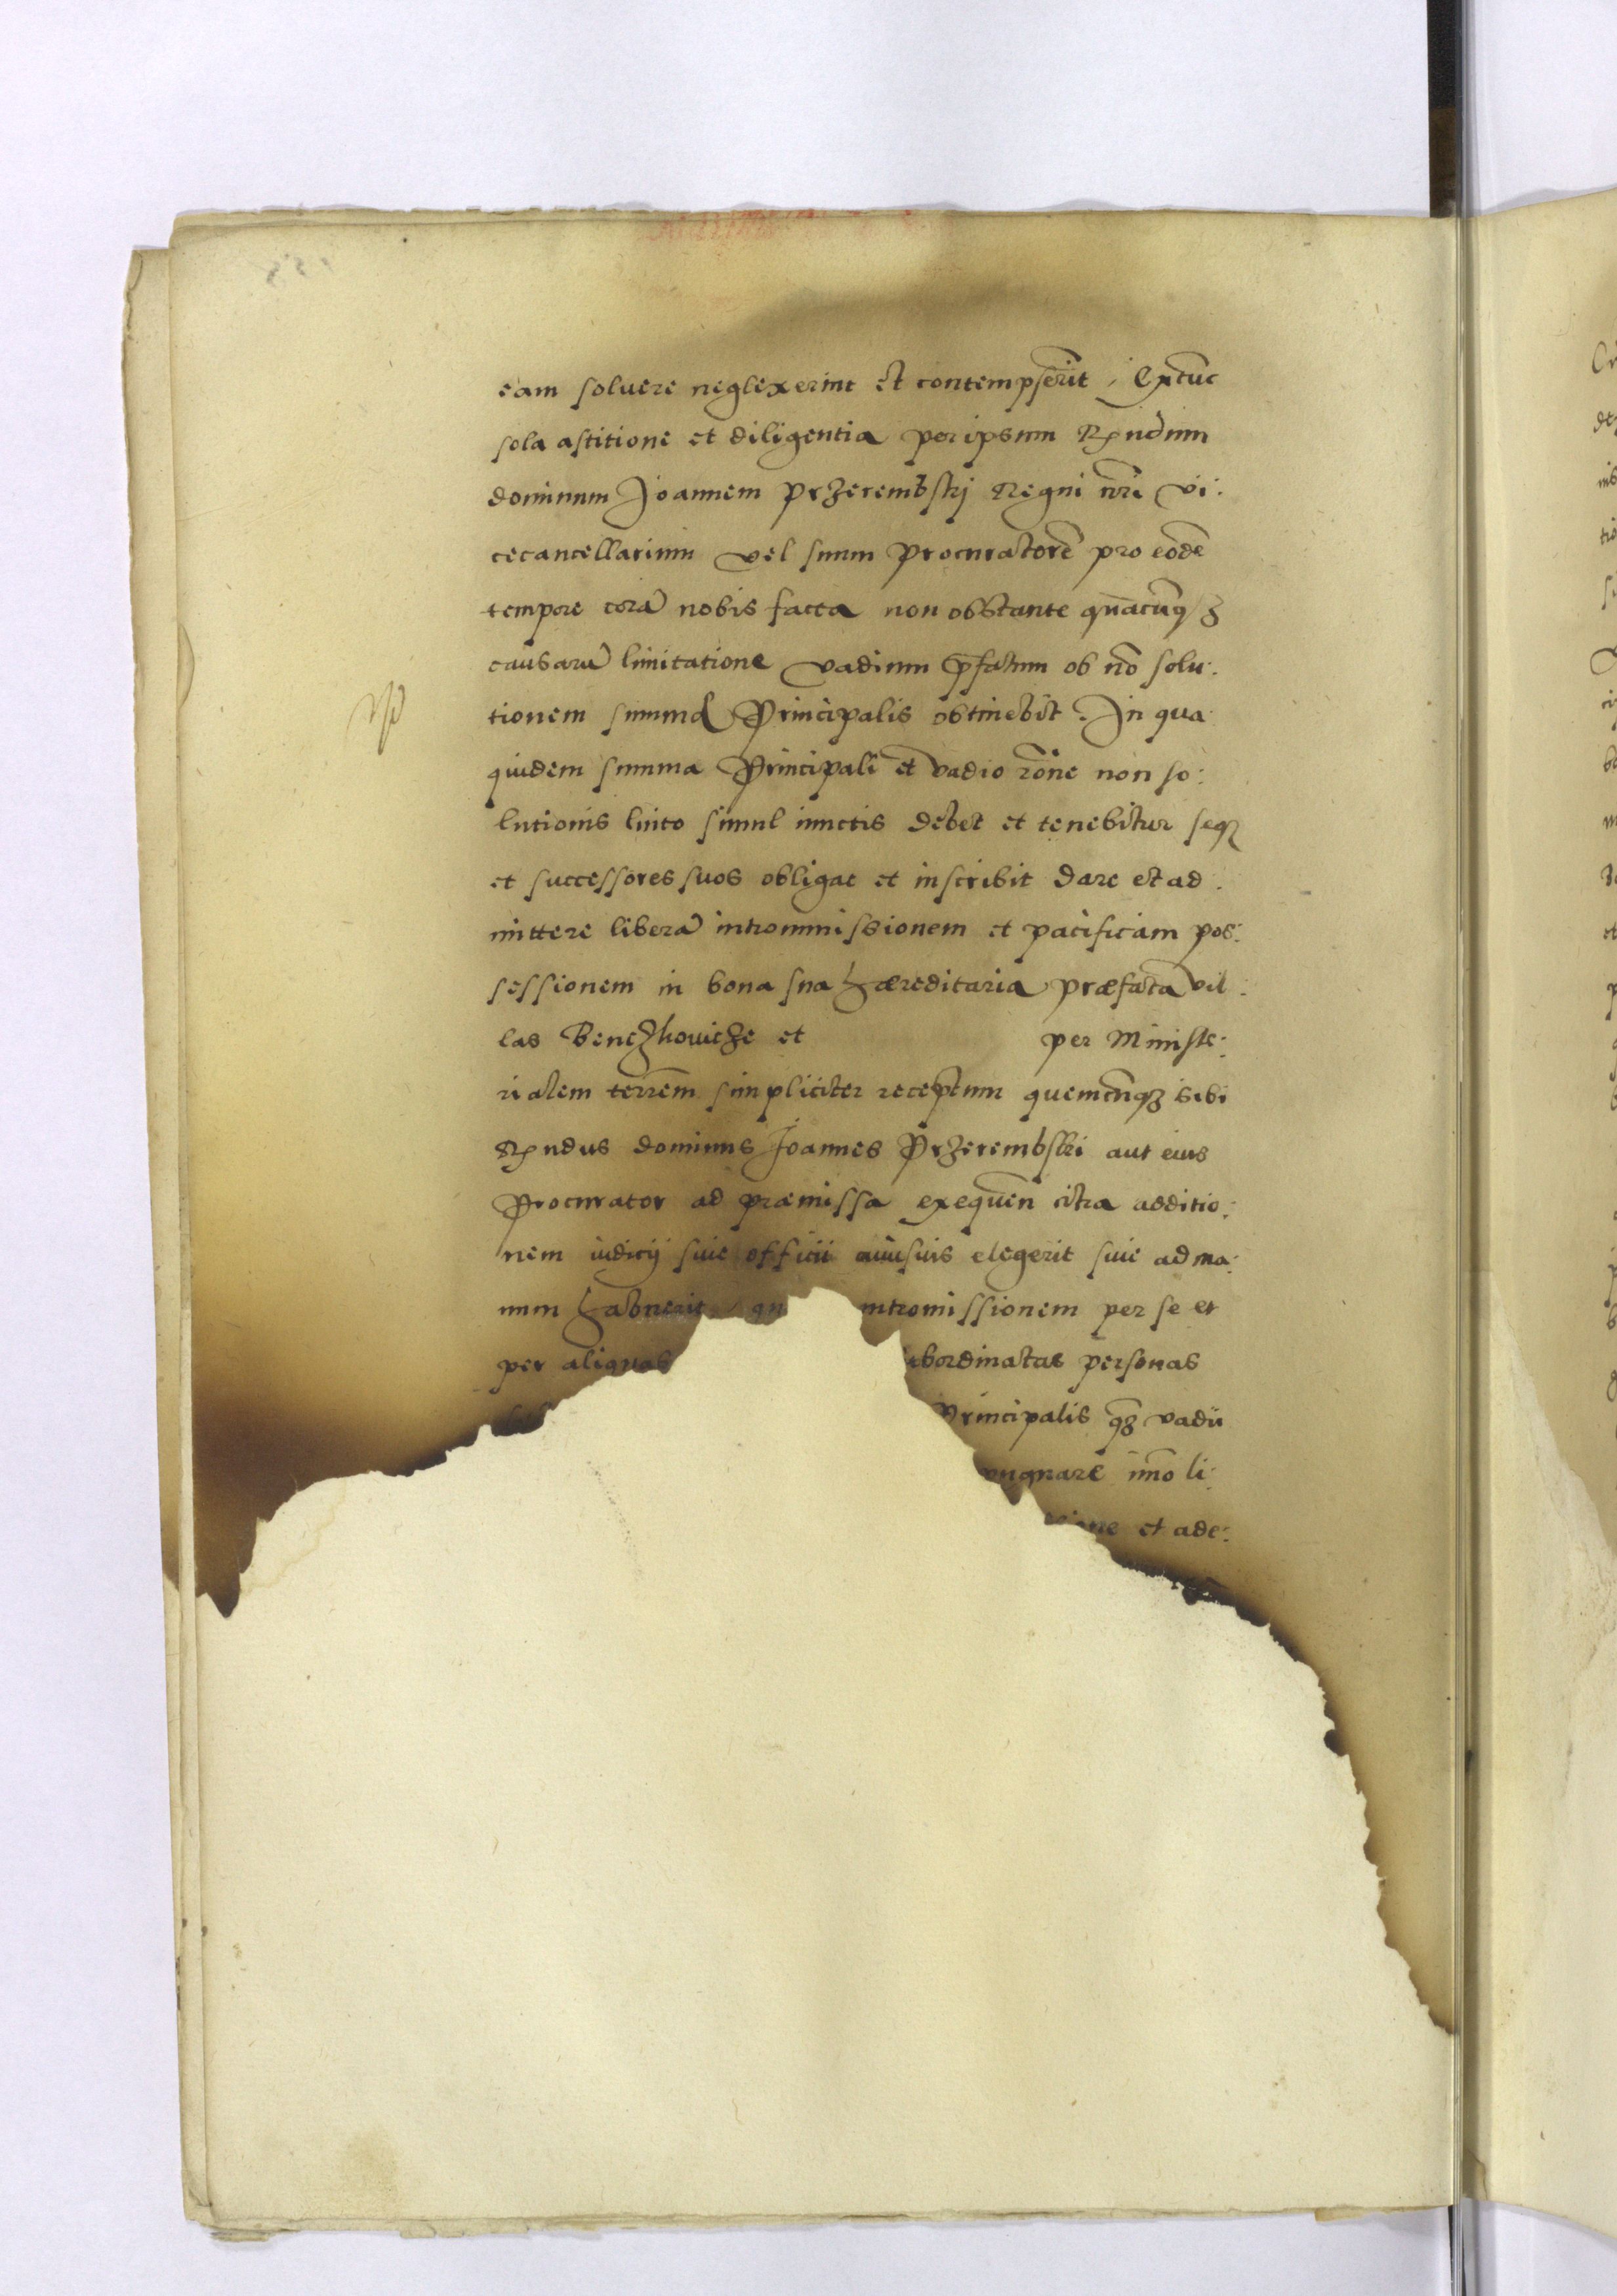 eam soluere neglexerint et contempserīt, Extūc
sola astitione et diligentia per ipsum Rꝑndum
dominum Joannem Przerembskj Regni nrī vi:
cecancellarium vel suum procuratorē pro eodē
tempore corā nobis facta non obstante quacūqꝫ
causarū limitatione vadium p̄fatum ob nō solu:
tionem summę Principalis obtinebit. In qua
quidem summa Principali et vadio rōne non so:
lutionis luito simul iunctis debet et tenebitur seqꝫ
et successores suos obligat et inscribit dare et ad:
mittere liberā intromissionem et pacificam pos:
sessionem in bona sua hæreditaria præfata vil:
las Benczkowicze et per Ministe:
rialem terrēm simpliciter receptum quemcūqꝫ sibi
Rꝑndus dominus Joannes Przerembski aut eius
Procurator ad præmissa exequēn citra additio:
nem iudicij siue officii cuiusuis elegerit siue ad ma:
num habuerit, intromissionem per se et
per aliquas personas
Principalis qꝫ vadii
imō li:
et ade: